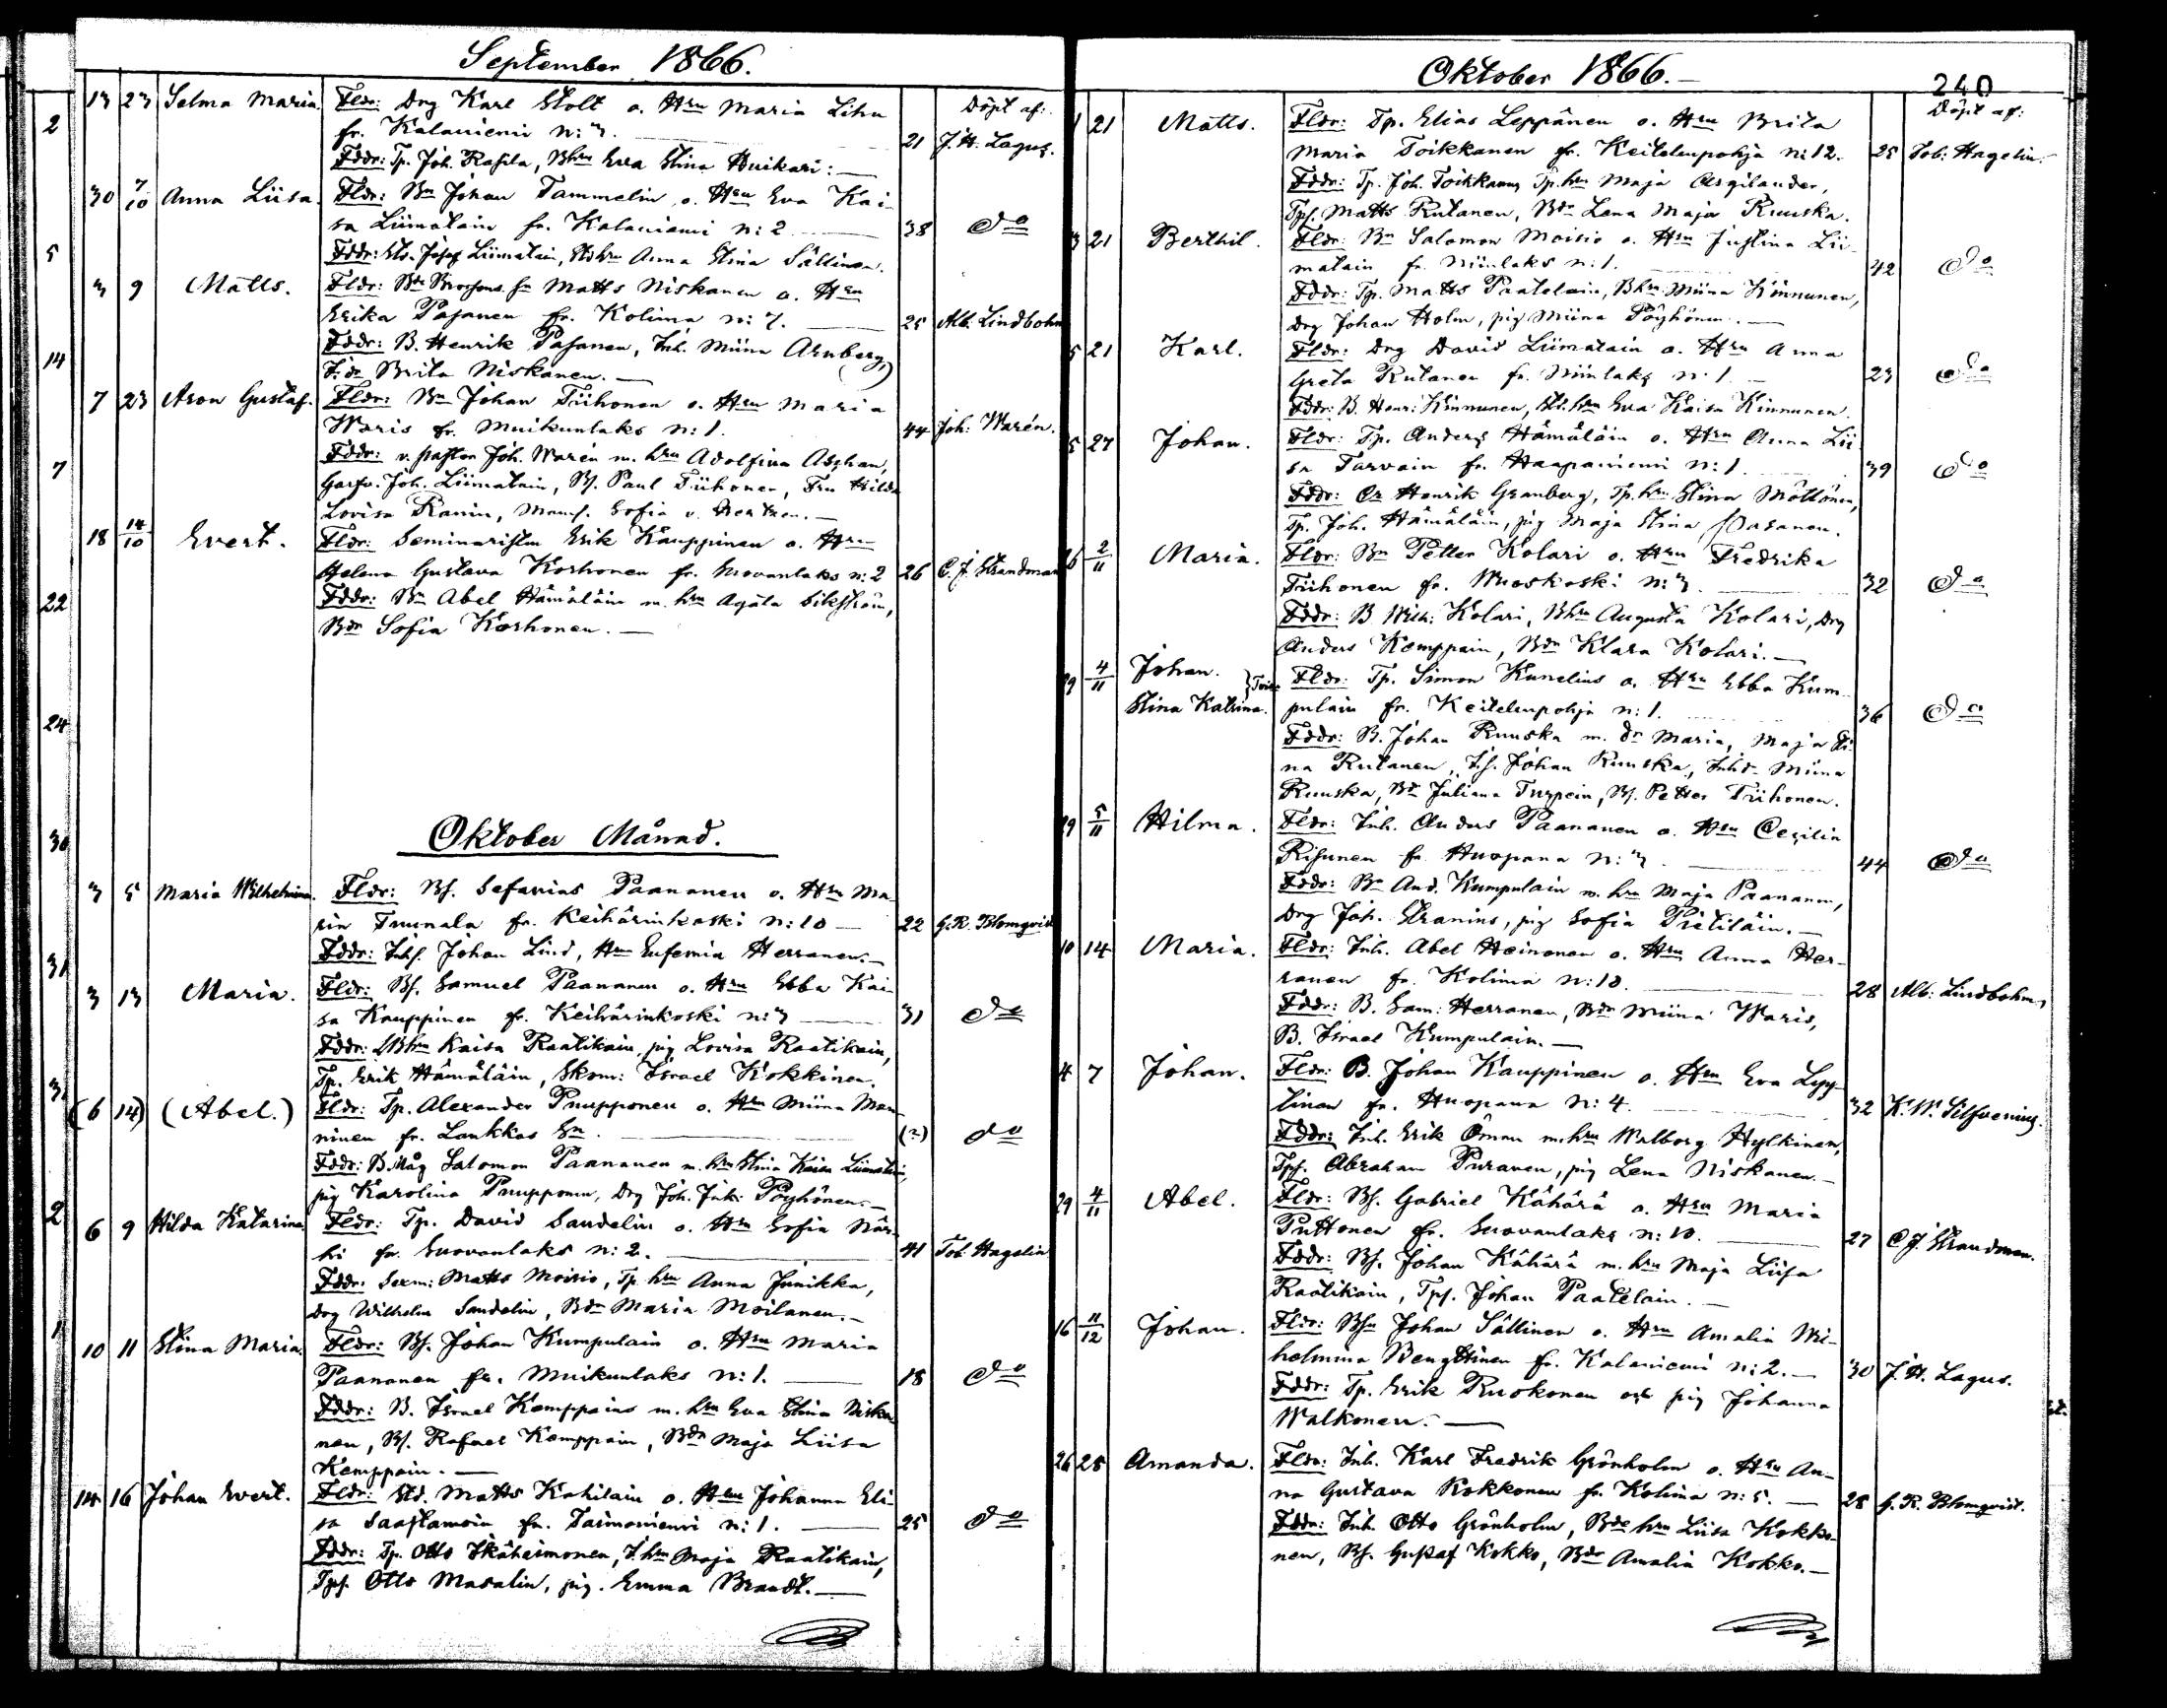 September 1866.
13 23 Selma Maria. Fldr: Drg Karl Stolt o. Hru Maria Lihn
fr. Kalaniemi N:3. 21 Döpt af: J. H. Lagus.
Fddr: Tp. Joh. Rasila, Bhru Eva Stina Huikari:
30 7/10 Anna Liisa. Fldr: Bn Johan Tammelin o. Hru Eva Kai-
sa Liimatain fr. Kalaniemi N:2 38 do
Fddr: Std. Josef Liimatain, Stdhru Anna Stina Sällinen.
3 9 Matts. Fldr: Matts Niskanen o. Hru
Erika Pasanen fr. Kolima N:7. 25 Alb. Lindbohm
Fddr: B. Henrik Pasanen, Inh. Miina Arnberg,
I.dr Brita Niskanen.
7 23 Aron Gustaf. Fldr: Bn Johan Tiihonen o. Hru Maria
Waris fr. Muikunlaks N:1. 44 Joh: Warén.
Fddr: v. pastor Joh. Warén m. hru Adolfina Aschan,
Garfv. Joh. Liimatain, Bs. Paul Tiihonen, Fru Hilda
Lovisa Ranin, Mams. Sofia v.
18 14/10 Evert. Fldr: Seminaristen Erik Kauppinen o. Hru
Helena Gustava Korhonen fr. Suovanlaks N:2 26 C. J. Strandman
Fddr: Bn Abel Hämäläin m. hru Agata Sikström,
Bdr Sofia Korhonen.
Oktober Månad.
3 5 Maria Wilhelmina. Fldr: Bs. Sefanias Paananen o. Hru Ma-
ria Tuunala fr. Keihärinkoski N:10 22 G. R. Blomqvist
Fddr: Inhs. Johan Lind, Hru Eufemia Herranen.
3 13 Maria. Fldr: Bs. Samuel Paananen o. Hru Ebba Kai-
sa Kauppinen fr. Keihärinkoski N:3 31 do
Fddr: Bhru Kaisa Raatikain, pig Lovisa Raatikain,
Tp. Erik Hämäläin, Skom: Israel Kokkinen.
(6 14) (Abel.) Fldr: Tp. Alexander Puupponen o. Hru Miina Man-
ninen fr. Lankkas Sn. (?) do
Fddr: B.måg Salomon Paananen m. hru Stina Kaisa Liimatain,
pig Karolina Puupponen, Drg Joh. Pöyhönen.
6 9 Hilda Katarina. Fldr: Tp. David Sandelin o. Hru Sofia När-
hi fr. Suovanlaks N:2. 41 Tob. Hagelin
Fddr: Sexm: Matts Moisio, Tp.hru Anna Junikka,
Drg Wilhelm Sandelin, Bdr Maria Moilanen.
10 11 Stina Maria. Fldr: Bs. Johan Kumpulain o. Hru Maria
Paananen fr. Muikunlaks N:1. 18 do
Fddr: B. Israel Kemppains m. hru Eva Stina Niska-
nen, Bs. Rafael Kemppain, Bdr Maja Liisa
Kemppain.
14 16 Johan Evert. Fldr: Std. Matts Kahilain o. Hru Johanna Eli-
sa Saastamoin fr. Taimoniemi N:1. 25 do
Fddr: Tp. Otto Ikäheimonen, I.hru Maja Raatikain,
Tps. Otto Masalin, pig. Emma Brandt.
Oktober 1866.
240
1 21 Matts. Fldr: Tp. Elias Leppänen o. Hru Brita Döpt af:
Maria Toikkanen fr. Keitelenpohja N:12. 25 Tob: Hagelin.
Fddr: Tp. Joh. Toikkanen, Tp.hru Maja
Tps. Matts Rutanen, Bdr Lena Maja Ruuska.
3 21 Berthil. Fldr: Bn Salomon Moisio o. Hru Justina Lii-
matain fr. Niinlaks N:1. 42 do
Fddr: Tp. Matts Paatelain, Bhru Miina Kinnunen,
Drg Johan Holm, pig Miina Pöyhönen.
5 21 Karl. Fldr: Drg David Liimatain o. Hru Anna
Greta Rutanen fr. Niinlaks N:1. 23 do
Fddr: B. Henr: Kinnunen, Std.hru Eva Kaisa Kinnunen.
5 27 Johan. Fldr: Tp. Anders Hämäläin o. Hru Anna Lii-
sa Tarvain fr. Haapaniemi N:1. 39 do
Fddr: Henrik Granberg, Tp.hru Stina Möttönen,
Tp. Joh. Hämäläin, pig Maja Stina Pasanen.
2/11 Maria. Fldr: Bn Petter Kolari o. Hru Fredrika
Tiihonen fr. Wuoskoski N:3. 32 do
Fddr: B. Wilh: Kolari, Bhru Augusta Kolari, Drg
Anders Kemppain, Bdr Klara Kolari.
29 4/11 Johan. } Fldr: Tp. Simon Kunelius o. Hru Ebba Kum-
Stina Katrina. pulain fr. Keitelenpohja N:1. 36 do
Fddr: B. Johan Ruuska m. dr Maria, Maja Sti-
na Rutanen, I.s. Johan Ruuska, Inhdr Miina
Ruuska, Bdr Juliana Turpein, Bs. Petter Tiihonen.
29 5/11 Hilma. Fldr: Inh. Anders Paananen o. Hru Cecilia
Risunen fr. Huopana N:3. 44 do
Fddr: Bn And. Kumpulain m. hru Maja Paananen,
Drg Joh. Stranius, pig Sofia Pietiläin.
10 14 Maria. Fldr: Inh. Abel Heinonen o. Hru Anna Her-
ranen fr. Kolima N:10. 28 Alb: Lindbohm,
Fddr: B. Sam: Herranen, Bdr Miina Waris,
B. Israel Kumpulain.
4 7 Johan. Fldr: B. Johan Kauppinen o. Hru Eva Lyy-
tinen fr. Huopana N:4. 32 K. W. Silfvenius.
Fddr: Inh. Erik Öman m. hru Walborg Hytkinen,
Tps. Abraham Puranen, pig Lena Niskanen.
29 4/11 Abel. Fldr: Bs. Gabriel Kähärä o. Hru Maria
Puttonen fr. Suovanlaks N:10. 27 C J. Strandman.
Fddr: Bs. Johan Kähärä m. hru Maja Liisa
Raatikain, Tps. Johan Paatelain.
16 11/12 Johan. Fldr: Bsn Johan Sällinen o. Hru Amalia Wi-
helmina Bengttinen fr. Kalaniemi N:2. 30 J. H. Lagus.
Fddr: Tp. Erik Ruokonen och pig Johanna
Walkonen.
26 28 Amanda. Fldr: Inh. Karl Fredrik Grönholm o. Hru An-
na Gustava Kokkonen fr. Kolima N:5. 28 G. R. Blomqvist.
Fddr: Inh. Otto Grönholm, Bde hru Liisa Kokko-
nen, Bs. Gustaf Kokko, Bdr Amalia Kokko.